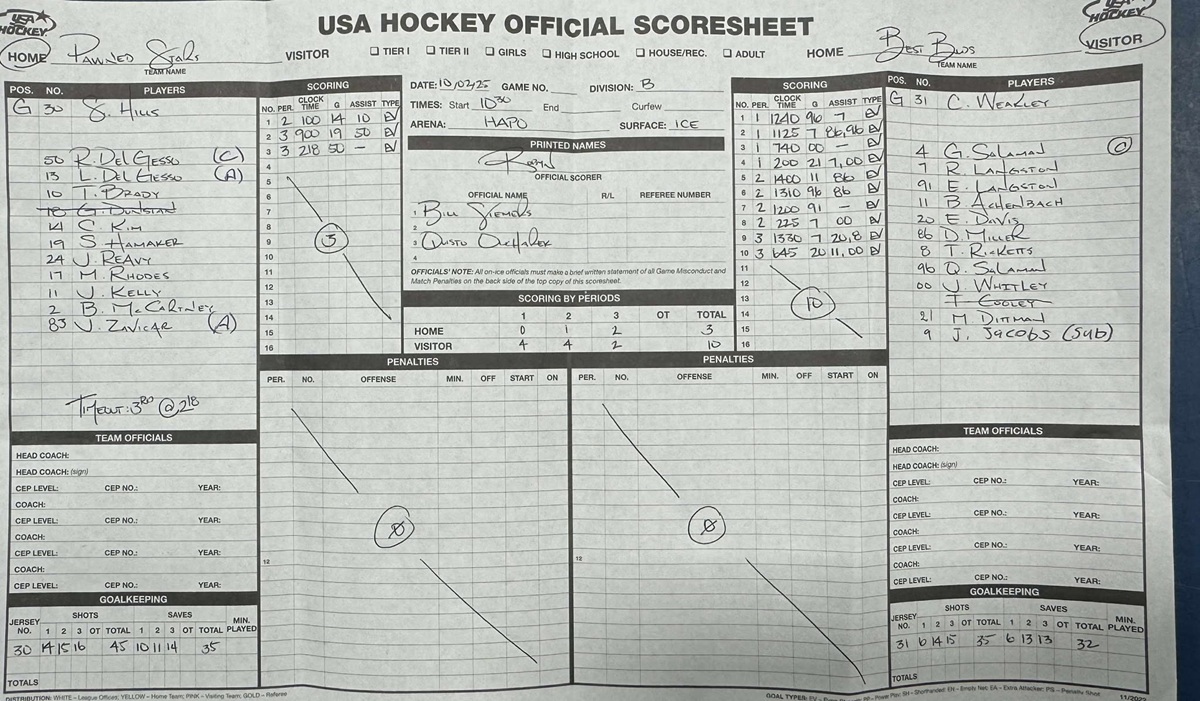 USA HOCKEY
USA HOCKEY OFFICIAL SCORESHEET
USA HOCKEY
HOME Pawned Stars VISITOR
☐ TIER I ☐ TIER II ☐ GIRLS ☐ HIGH SCHOOL ☐ HOUSE/REC. ☐ ADULT
HOME Best Buds VISITOR
TEAM NAME
TEAM NAME
POS. NO. PLAYERS
G 30 S. Hills
50 R. Del Gesso (C)
13 L. Del Gesso (A)
10 T. Brady
18 G. Dunsian
14 S. Kim
19 S Hamaker
24 J. Reavy
17 M. Rhodes
11 J. Kelly
2 B. McCartney
83 J. Zavicar (A)
Timeout: 3RD @ 218
SCORING
NO. PER. CLOCK TIME G ASSIST TYPE
1 2 100 14 10 EV
2 3 900 19 50 EV
3 3 218 50 – EV
4
5
6
7
8
9
10
11
12
13
14
15
16
3
DATE: 10/02/25 GAME NO. DIVISION: B
TIMES: Start 1030 End Curfew
ARENA: HAPO SURFACE: ICE
PRINTED NAMES
OFFICIAL SCORER
OFFICIAL NAME R/L REFEREE NUMBER
1 Bill
2
3
4
OFFICIALS' NOTE: All on-ice officials must make a brief written statement of all Game Misconduct and
Match Penalties on the back side of the top copy of this scoresheet.
SCORING BY PERIODS
1 2 3 OT TOTAL
HOME 0 1 2 3
VISITOR 4 4 2 10
SCORING
NO. PER. CLOCK TIME G ASSIST TYPE
1 1 1240 96 7 EV
2 1 1125 7 86,96 EV
3 1 740 00 – EV
4 1 200 21 7,00 EV
5 2 1400 11 86 EV
6 2 1310 96 86 EV
7 2 1200 91 – EV
8 2 225 7 00 EV
9 3 1330 7 20,8 EV
10 3 645 20 11,00 EV
11
12
13
14
15
16
10
POS. NO. PLAYERS
G 31 C. Weakley
4 G. Salaman (C)
7 R. Langston
91 E. Langston
11 B. Achenbach
20 E. Davis
86 D. Miller
8 T. Ricketts
96 Q. Salaman
00 J. Whitley
T. Cooley
21 M. Dittman
9 J. Jacobs (Sub)
PENALTIES
PER. NO. OFFENSE MIN. OFF START ON
12
0
PENALTIES
PER. NO. OFFENSE MIN. OFF START ON
12
0
TEAM OFFICIALS
HEAD COACH:
HEAD COACH: (sign)
CEP LEVEL: CEP NO.: YEAR:
COACH:
CEP LEVEL: CEP NO.: YEAR:
COACH:
CEP LEVEL: CEP NO.: YEAR:
COACH:
CEP LEVEL: CEP NO.: YEAR:
GOALKEEPING
SHOTS SAVES
JERSEY NO. 1 2 3 OT TOTAL 1 2 3 OT TOTAL MIN. PLAYED
30 14 15 16 45 10 11 14 35
TOTALS
TEAM OFFICIALS
HEAD COACH:
HEAD COACH: (sign)
CEP LEVEL: CEP NO.: YEAR:
COACH:
CEP LEVEL: CEP NO.: YEAR:
COACH:
CEP LEVEL: CEP NO.: YEAR:
COACH:
CEP LEVEL: CEP NO.: YEAR:
GOALKEEPING
SHOTS SAVES
JERSEY NO. 1 2 3 OT TOTAL 1 2 3 OT TOTAL MIN. PLAYED
31 6 14 15 35 6 13 13 32
TOTALS
DISTRIBUTION: WHITE – League Offices; YELLOW – Home Team; PINK – Visiting Team; GOLD – Referee
GOAL TYPES: PP – Power Play; SH – Shorthanded; EN – Empty Net; EA – Extra Attacker; PS – Penalty Shot